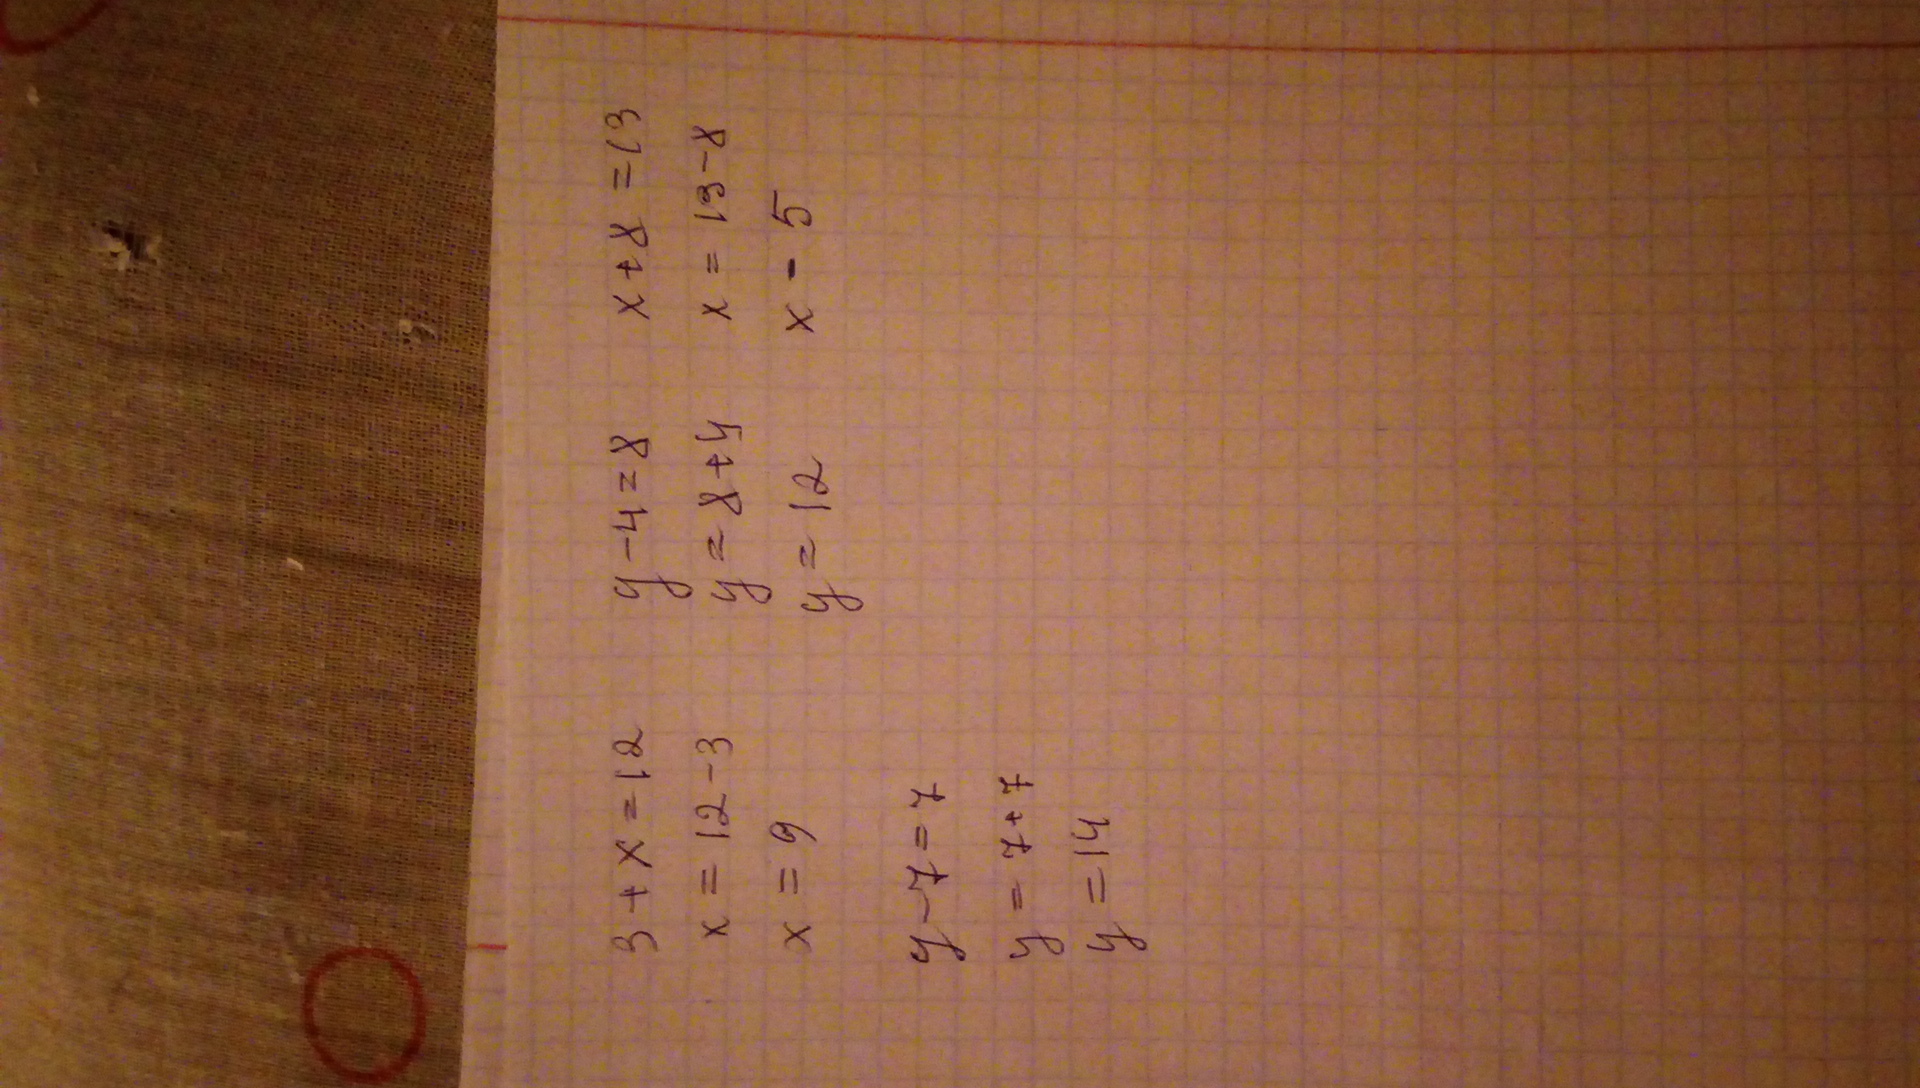 3 + x = 12
x = 12 - 3
x = 9
y - 4 = 8
y = 8 + 4
y = 12
x + 8 = 13
x = 13 - 8
x - 5
y - 7 = 7
y = 7 + 7
y = 14